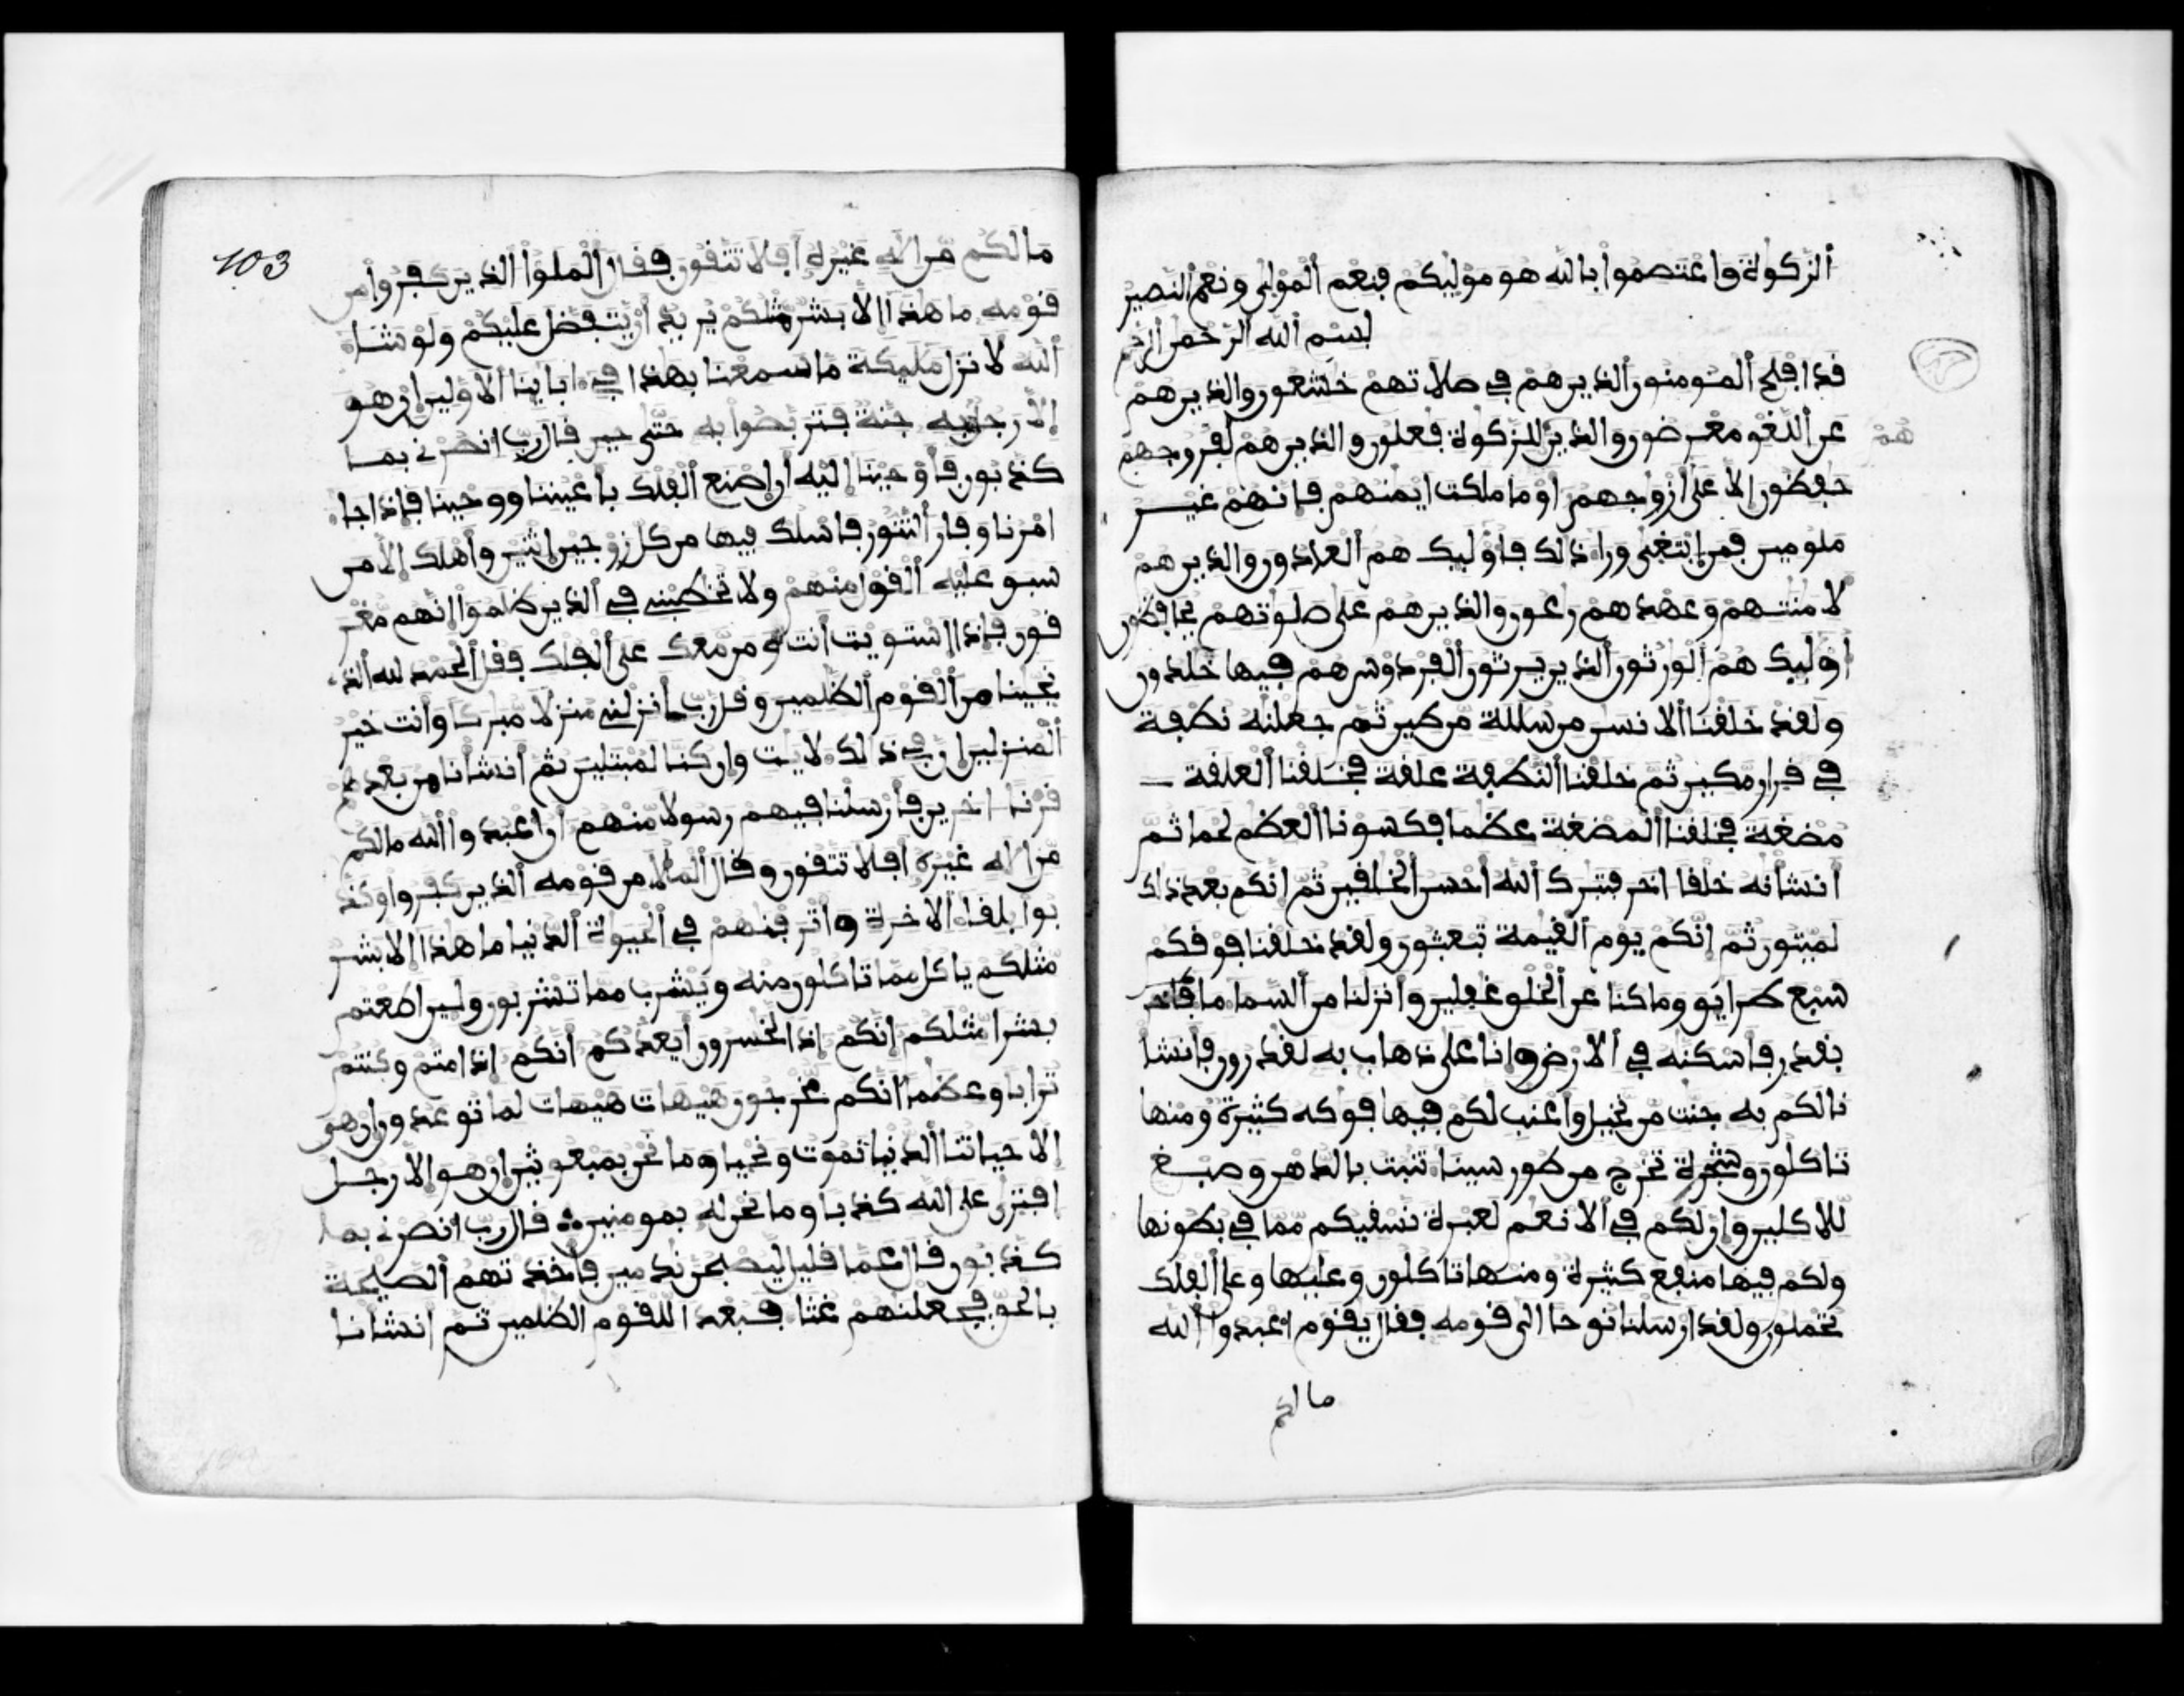 ألزكوة واعتصموا بالله هو موليكم فنعم ألمولى ونعم ألنصير
بسم ألله ألرحمن ألرحيم
قد افلح ألمومنون ألذين هم في صلاتهم خشعون والذين هم
عن أللغو معرضون والذين للزكوة فعلون والذين هم لفروجهم
هم
حفظون إلا على أزوجهم او ما ملكت ايمنهم فانهم غير
ملومين فمن إبتغى ورا ذلك فاوليك هم ألعادون والذين هم
لامنتهم وعهدهم رعون والذين هم على صلوتهم يحافظون
أوليك هم ألورثون ألذين يرثون ألفردوس هم فيها خلدون
ولقد خلقنا ألانسن من سللة من طين ثم جعلنه نطفة
في قرار مكين ثم خلقنا ألنطفة علقة فخلقنا ألعلقة
مضغة فخلقنا ألمضغة عظما فكسونا ألعظم لحما ثم
أنشانه خلقا اخر فتبرك ألله أحسن ألخلقين ثم إنكم بعد ذلك
لميتون ثم إنكم يوم ألقيمة تبعثون ولقد خلقنا فوقكم
سبع طرايق وما كنا عن ألخلق غفلين وأنزلنا من ألسما ما
بقدر فاسكنه في ألارض وانا على ذهاب به لقدرون فانشا
نا لكم به جنت من نخيل وأعنب لكم فيها فوكه كثيرة ومنها
تاكلون وشجرة تخرج من طور سينا تنبت بالدهن وصبغ
للاكلين وإن لكم في ألانعم لعبرة نسقيكم مما في بطونها
ولكم فيها منفع كثيرة ومنها تاكلون وعليها وعلى ألفلك
تحملون ولقد ارسلنا نوحا الى قومه فقال يقوم اعبدوا ألله
ما لكم
103
ما لكم من اله غيره أفلا تتقون فقال ألملوا ألذين كفروا من
قومه ما هذا إلا بشر مثلكم يريد أن يتفضل عليكم ولو شا
ألله لانزل مليكة ما سمعنا بهذا في اباينا ألاولين إن هو
إلا رجل به جنة فتربصوا به حتى حين قال رب انصرني بما
كذبون فأوحينا إليه أن إصنع ألفلك بأعيننا ووحينا فإذا جا
امرنا وفار ألتنور فاسلك فيها من كل زوجين إثنين وأهلك إلا من
سبق عليه ألقول منهم ولا تخطبني في ألذين ظلموا إنهم مغر
قون فإذا إستويت أنت ومن معك على ألفلك فقل ألحمد لله ألذ
نجينا من ألقوم ألظلمين وقل رب أنزلني منزلا مبركا وأنت خير
ألمنزلين إن في ذالك لايت وإن كنا لمبتلين ثم أنشانا من بعدهم
قرنا اخرين فارسلنا فيهم رسولا منهم أن اعبدوا ألله ما لكم
من اله غيره أفلا تتقون وقال ألملا من قومه ألذين كفروا وكذ
بوا بلقا ألاخرة وأترفنهم في ألحيوة ألدنيا ما هذا إلا بشر
مثلكم ياكل مما تاكلون منه ويشرب مما تشربون ولين اطعتم
بشرا مثلكم إنكم إذا لخسرون أيعدكم أنكم إذا متم وكنتم
ترابا وعظما أنكم مخرجون هيهات هيهات لما توعدون إن هي
إلا حياتنا ألدنيا نموت ونحيا وما نحن بمبعوثين إن هو إلا رجل
افترى على الله كذبا وما نحن له بمومنين قال رب انصرني بما
كذبون قال عما قليل ليصبحن ندمين فأخذتهم ألصيحة
بالحق فجعلنهم غثا فبعدا للقوم الظلمين ثم انشانا